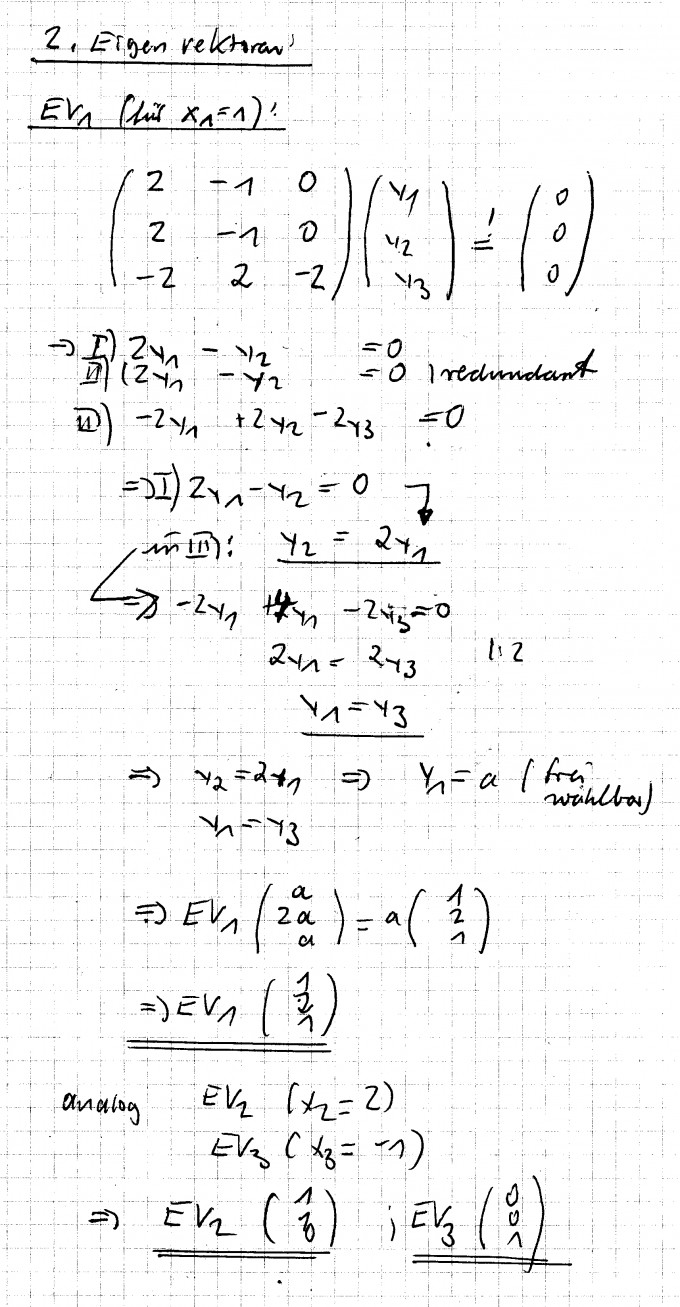 2. Eigenvektoren:
EV₁ (für x₁=1):
( 2 -1 0 ) ( y₁ ) ! ( 0 )
( 2 -1 0 ) ( y₂ ) = ( 0 )
( -2 2 -2 ) ( y₃ ) ( 0 )
⇒ I) 2y₁ - y₂ = 0
II) (2y₁ - y₂ = 0 | redundant
III) -2y₁ + 2y₂ - 2y₃ = 0
⇒ I) 2y₁ - y₂ = 0
in III): y₂ = 2y₁
⇒ -2y₁ + 4y₁ - 2y₃ = 0
2y₁ = 2y₃ |:2
y₁ = y₃
⇒ y₂ = 2y₁ ⇒ y₁ = a (frei
wählbar)
y₁ = y₃
⇒ EV₁ ( a 2a a ) = a ( 1 2 1 )
⇒ EV₁ ( 1 2 1 )
analog EV₂ (x₂ = 2)
EV₃ (x₃ = -1)
⇒ EV₂ ( 1 1 0 ) ; EV₃ ( 0 0 1 )